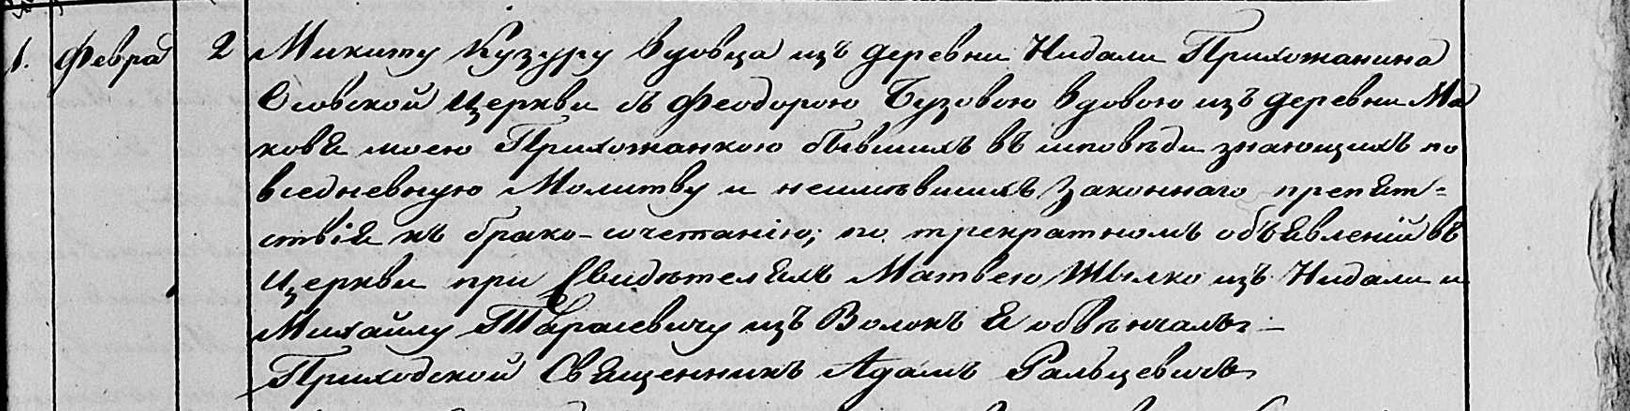 1. Феврал 2 Микиту Кузуру вдовца изъ деревни Нидали Прихожанина
Осовской Церкви съ Феодорою Бузовою вдовою изъ деревни Ма
ковя моею Прихожанкою бывшихъ въ исповѣди знающихъ по
вседневную Молитву и неимѣвшихъ Законнаго препят=
ствія къ брако-сочетанію; по трекратномъ объявленій въ
Церкви при Свидѣтеляхъ Матвею Шылко изъ Нидали и
Михайлу Тарасевичу изъ Волокъ я обвѣнчалъ
Приходской Священникъ Адамъ Ральцевичъ